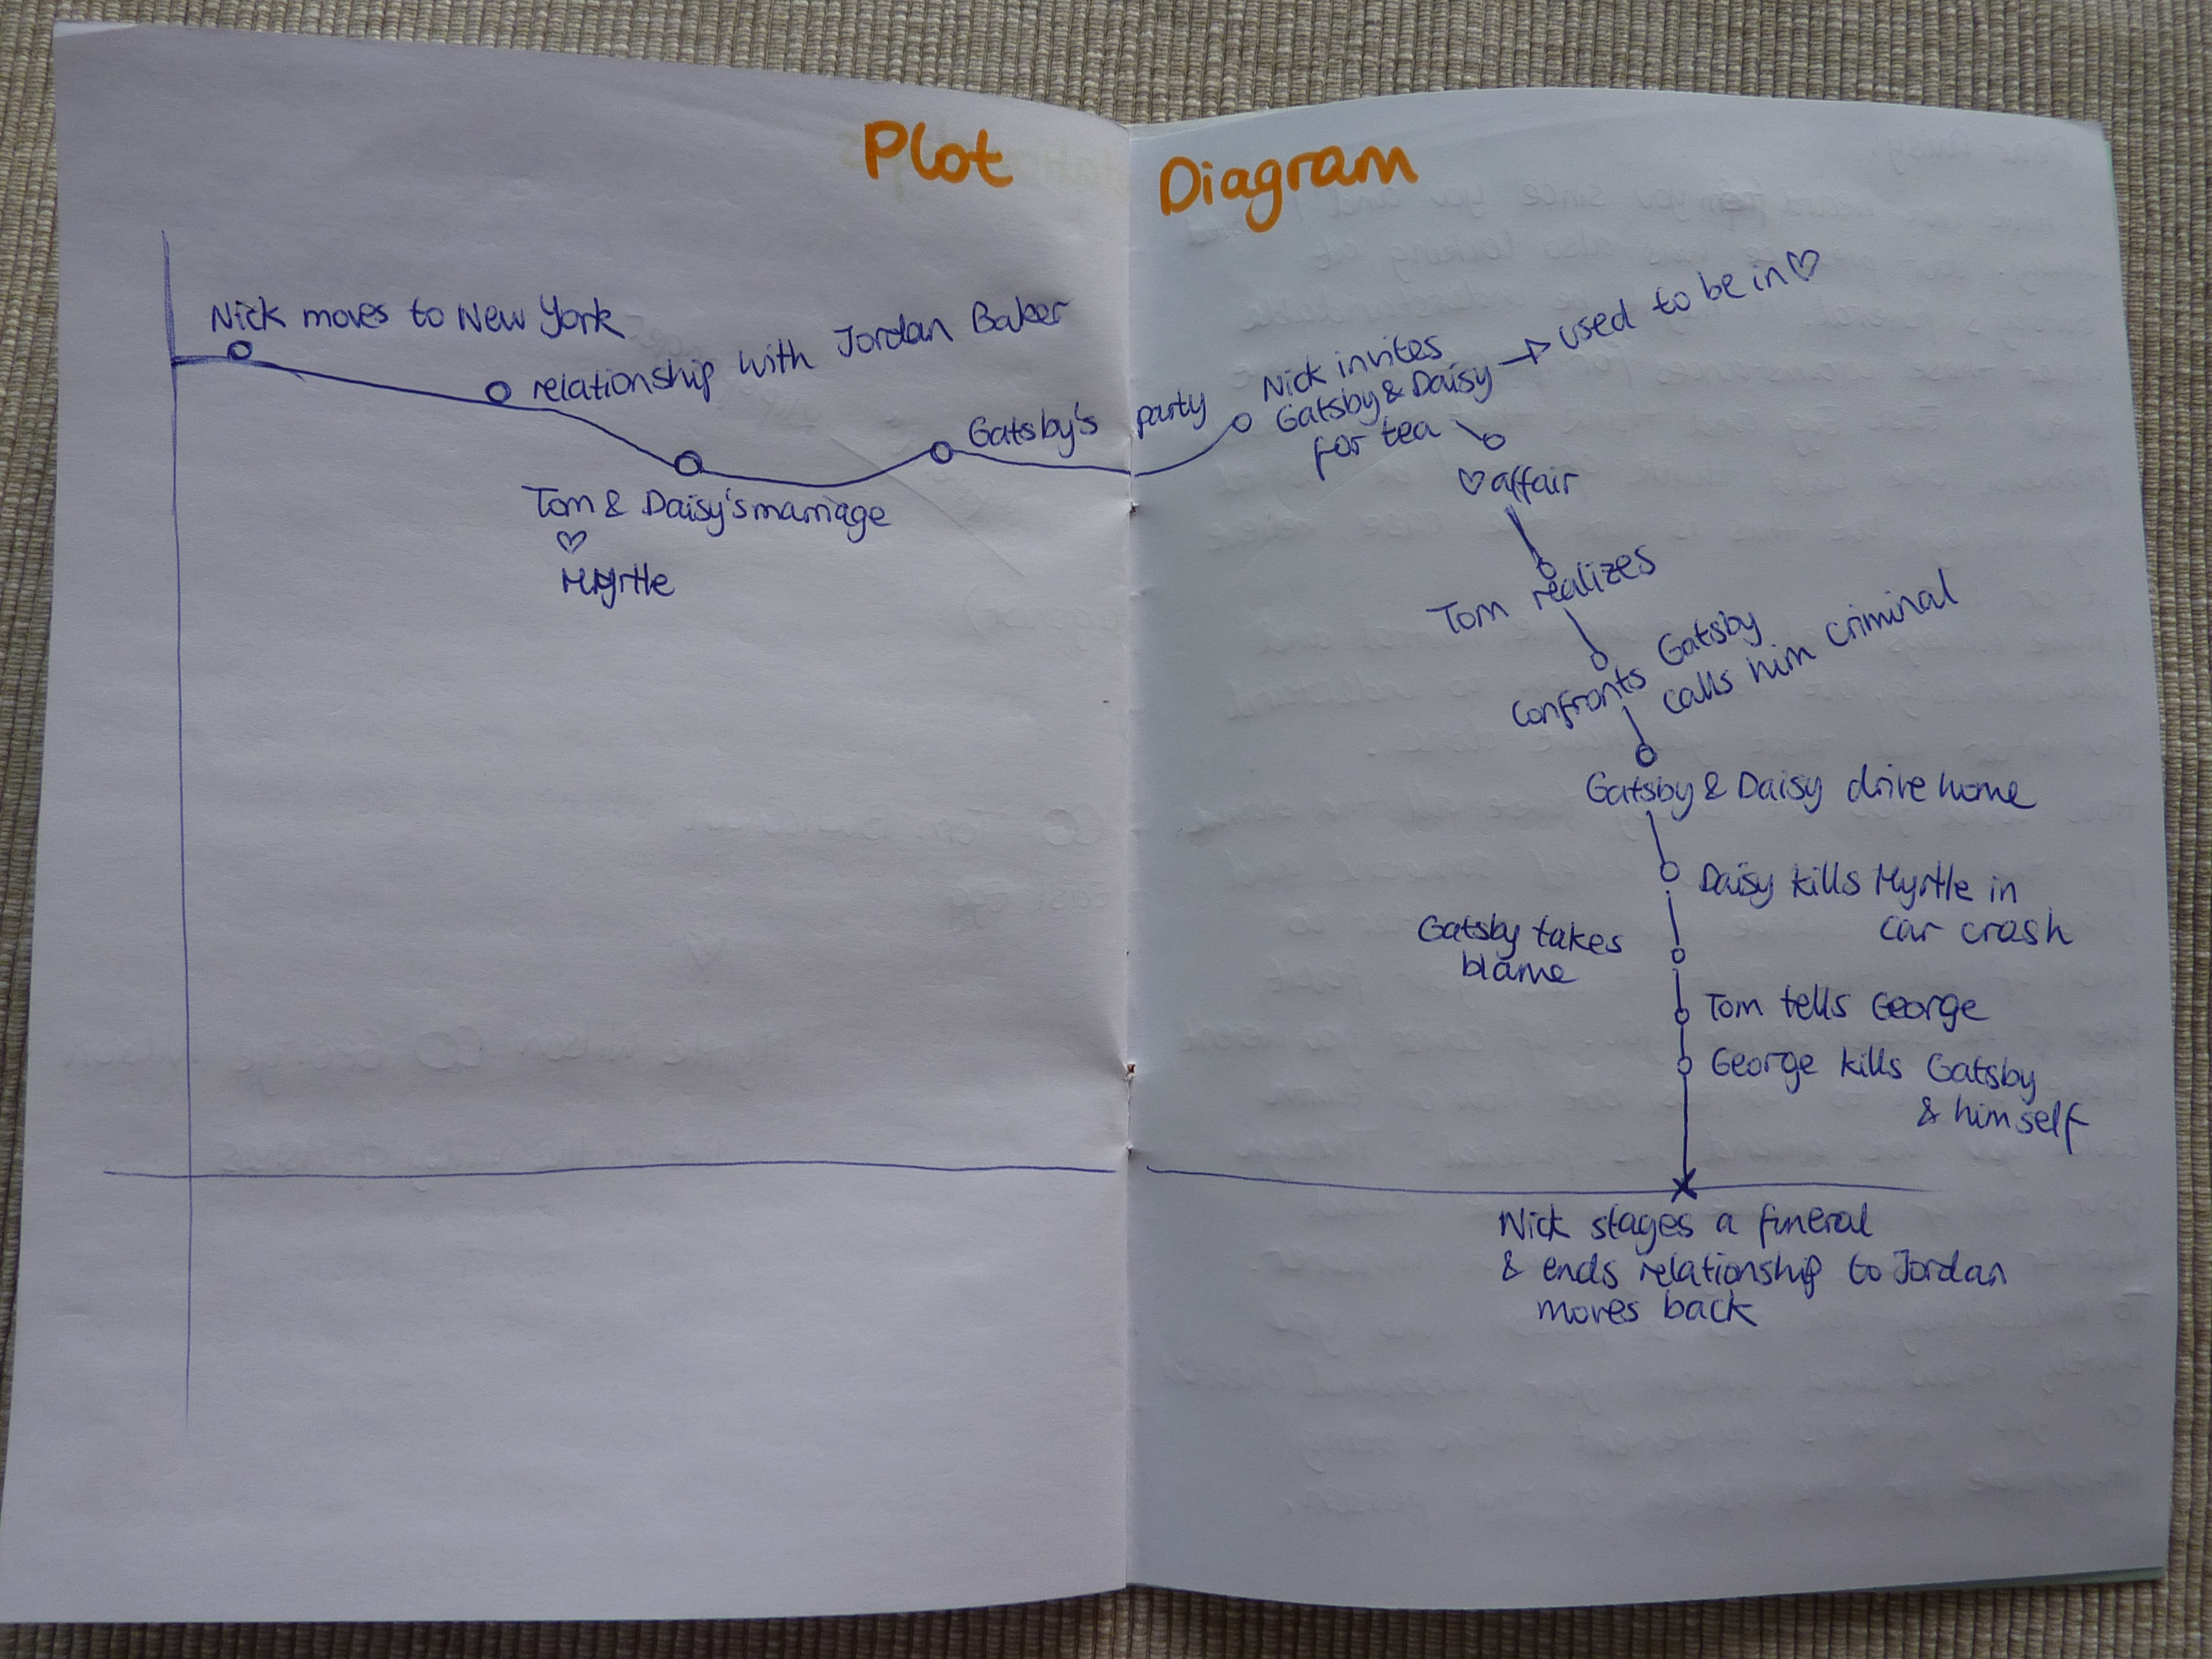 Plot Diagram
Nick moves to New York
relationship with Jordan Baker
Tom & Daisy's marriage
♡
Myrtle
Gatsby's party
Nick invites
Gatsby & Daisy → used to be in ♡
for tea
♡ affair
Tom realizes
confronts Gatsby
calls him criminal
Gatsby & Daisy drive home
Daisy kills Myrtle in
car crash
Gatsby takes
blame
Tom tells George
George kills Gatsby
& himself
Nick stages a funeral
& ends relationship to Jordan
moves back